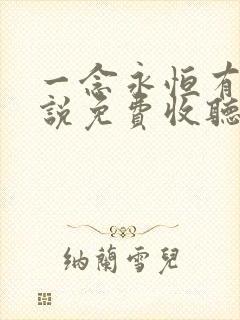 一念永恒有
説免費收聽
納蘭雪兒